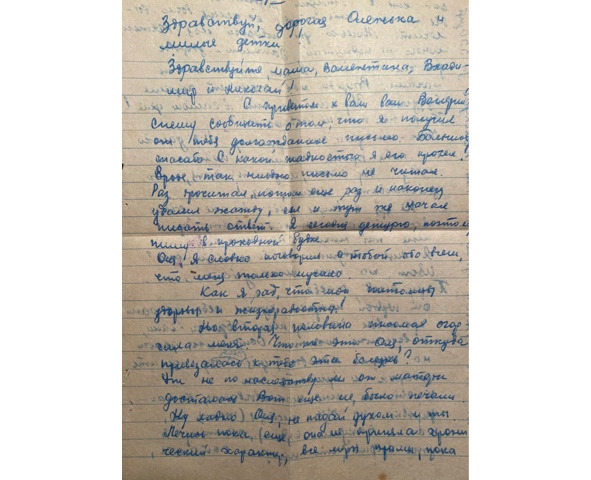 Здравствуй, дорогая Оленька и
милые детки!
Здравствуйте, мама, Валентина, Влади-
мир и Николай!
С приветом к вам ваш
спешу сообщить о том, что я получил
от тебя долгожданное письмо. Большое
спасибо. С какой жадностью я его прочел!
так письмо не читал.
Раз прочитал, потом еще раз и наконец
сел и тут же начал
писать ответ. Я сегодня дежурю, поэтому
пишу в проходной будке.
Оля, я словно поговорил с тобой обо всем,
что меня только мучало
Как я рад, что
здоровы и жизнерадостны!
Но вторая половина письма огор-
чила меня. Что же это, Оля, откуда
привязалась к тебе эта болезнь?
Уж не по наследству ли от матери
досталась? Вот еще не было печали.
Ну ладно, Оля, не падай духом и ты
Лечись пока, (еще) она не приняла хрони
ческий характер, все меры прими, пока